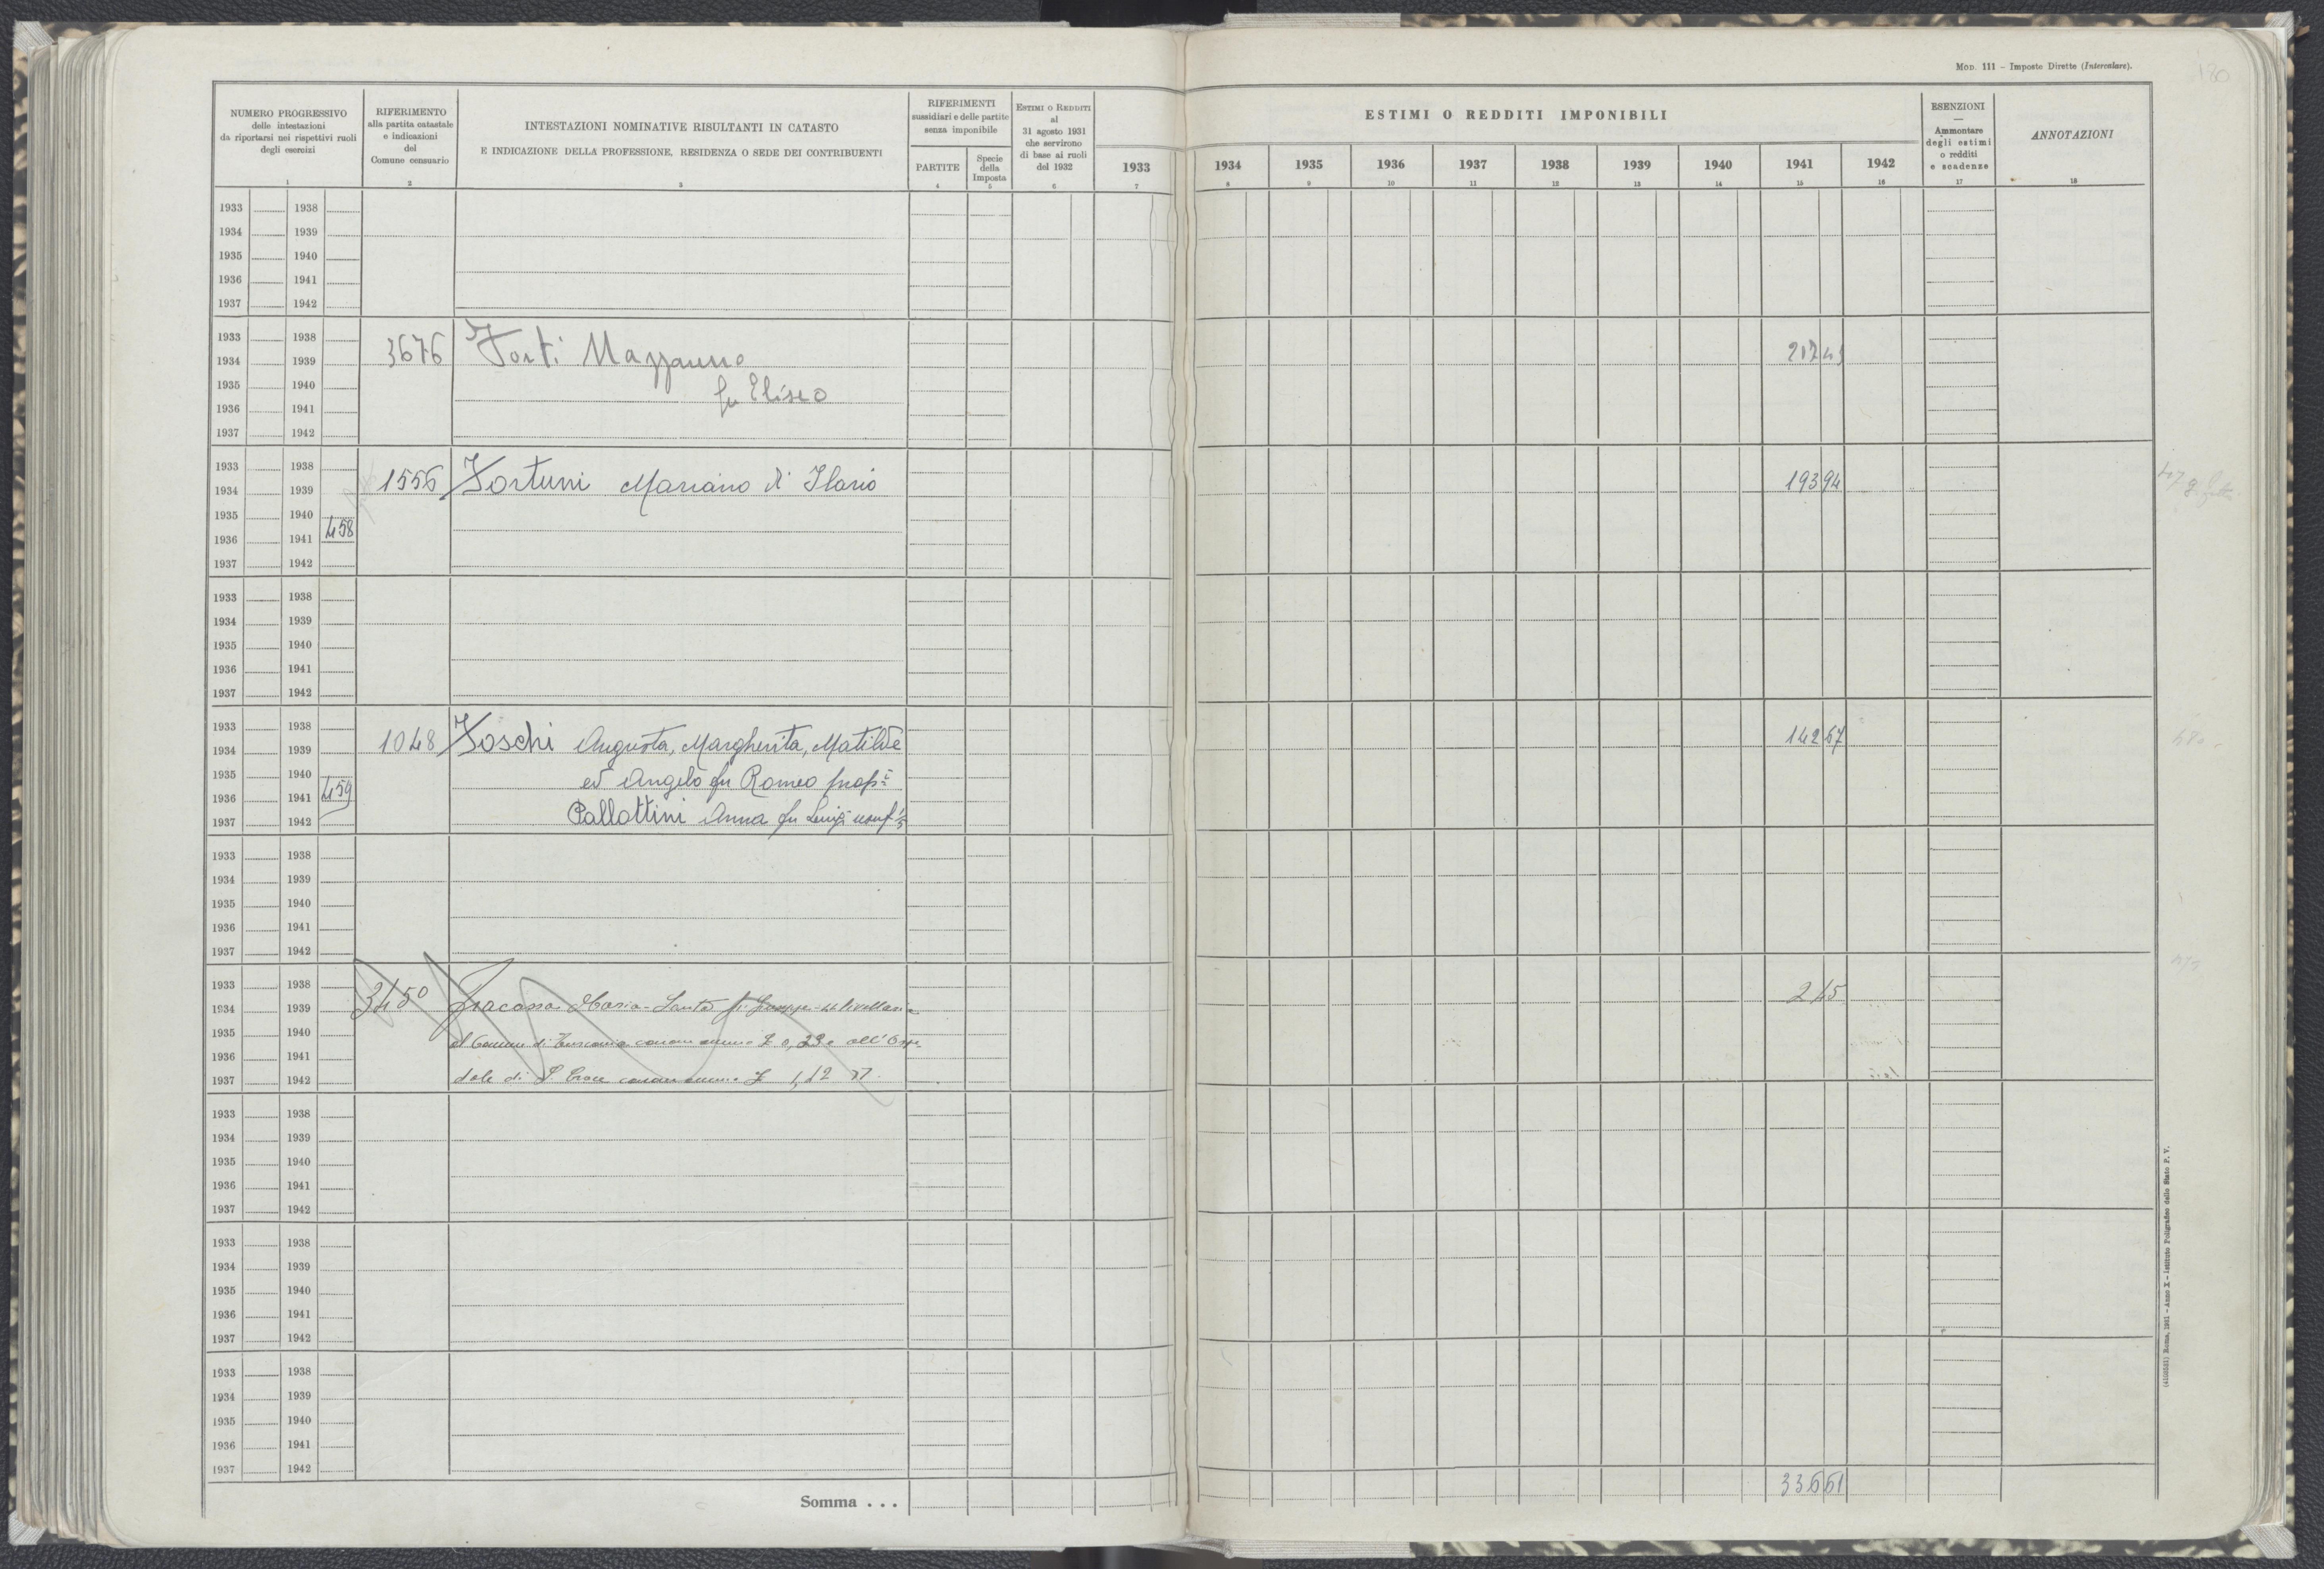 MOD. 111 – Imposte Dirette (Intercalare).
120
NUMERO PROGRESSIVO
delle intestazioni
da riportarsi nei rispettivi ruoli
degli esercizi
1
RIFERIMENTO
alla partita catastale
e indicazioni
del
Comune censuario
2
INTESTAZIONI NOMINATIVE RISULTANTI IN CATASTO
E INDICAZIONE DELLA PROFESSIONE, RESIDENZA O SEDE DEI CONTRIBUENTI
3
RIFERIMENTI
sussidiari e delle partite
senza imponibile
PARTITE
4
Specie
della
Imposta
5
ESTIMI O REDDITI
al
31 agosto 1931
che servirono
di base ai ruoli
del 1932
6
ESTIMI O REDDITI IMPONIBILI
1933
7
1934
8
1935
9
1936
10
1937
11
1938
12
1939
13
1940
14
1941
15
1942
16
ESENZIONI
—
Ammontare
degli estimi
o redditi
e scadenze
17
ANNOTAZIONI
18
1933 1938
1934 1939
1935 1940
1936 1941
1937 1942
1933 1938
1934 1939 3676 Forti
1935 1940 fu Eliseo
1936 1941
1937 1942
1933 1938
1934 1939 1556 Fortuni Mariano di Ilario 193 94
1935 1940
1936 1941 458
1937 1942
1933 1938
1934 1939
1935 1940
1936 1941
1937 1942
1933 1938
1934 1939 1048 Foschi Augusta, Margherita, Matilde 142 67
1935 1940 ed Angelo fu Romeo prop:
1936 1941 459
1937 1942 Pallottini Anna fu Luigi usuf
1933 1938
1934 1939
1935 1940
1936 1941
1937 1942
1933 1938
1934 1939 3450 Fracassa Maria-Santa 2 45
1935 1940 al Comune di Tuscania
1936 1941
1937 1942 dale di S Croce
1933 1938
1934 1939
1935 1940
1936 1941
1937 1942
1933 1938
1934 1939
1935 1940
1936 1941
1937 1942
1933 1938
1934 1939
1935 1940
1936 1941
1937 1942
Somma . . . 336 61
(4109331) Roma, 1931 – Anno X – Istituto Poligrafico dello Stato P. V.